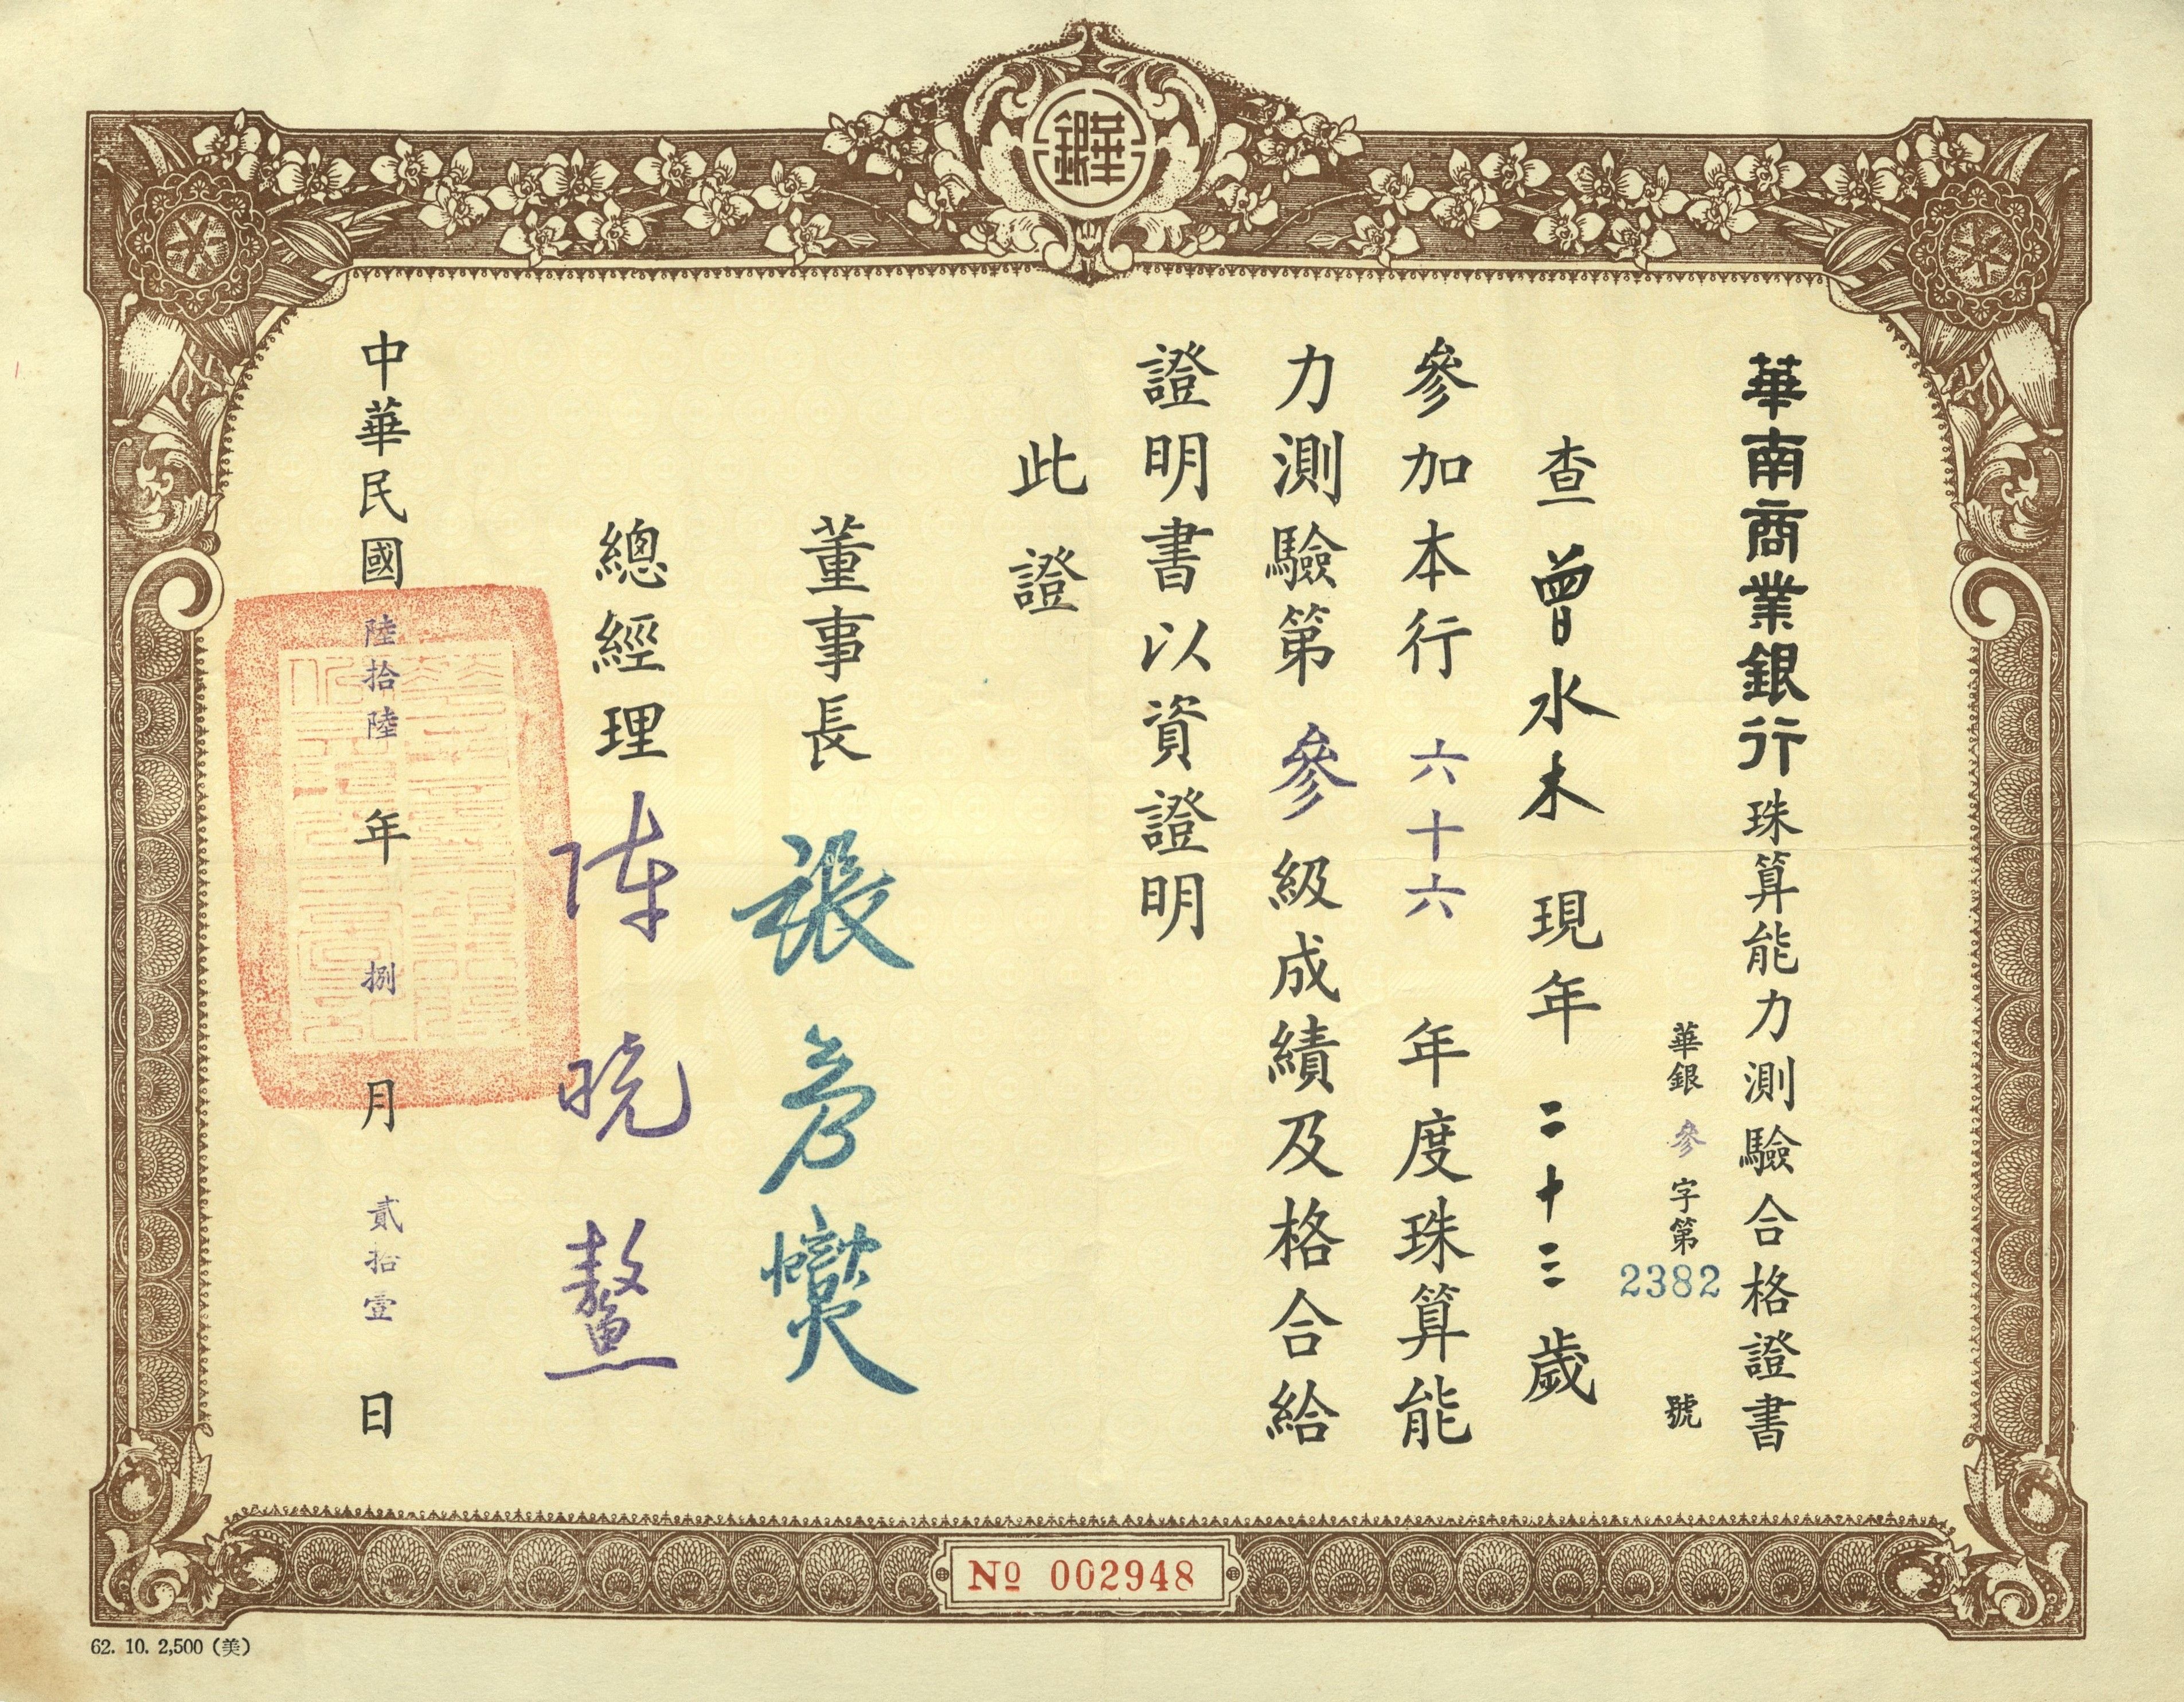 華銀
華南商業銀行珠算能力測驗合格證書
華銀參字第2382號
查曾水木現年二十三歲
參加本行六十六年度珠算能
力測驗第參級成績及格合給
證明書以資證明
此證
董事長
總經理陳晚鰲
中華民國陸拾陸年捌月貳拾壹日
No 002948
62. 10. 2,500 (美)